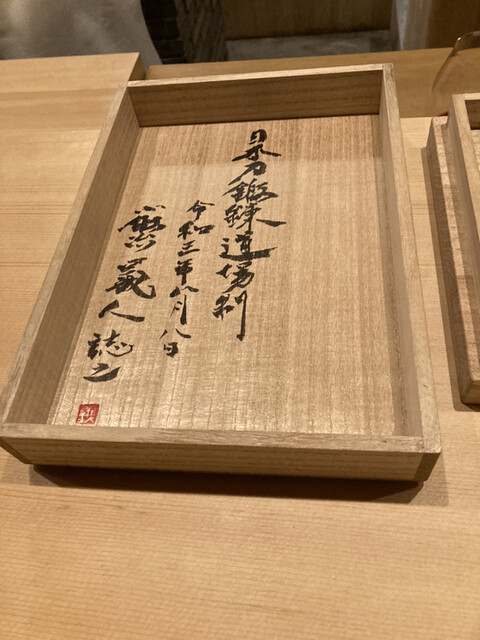 日本刀鍛錬道場制
令和三年八月八日
義人誌之